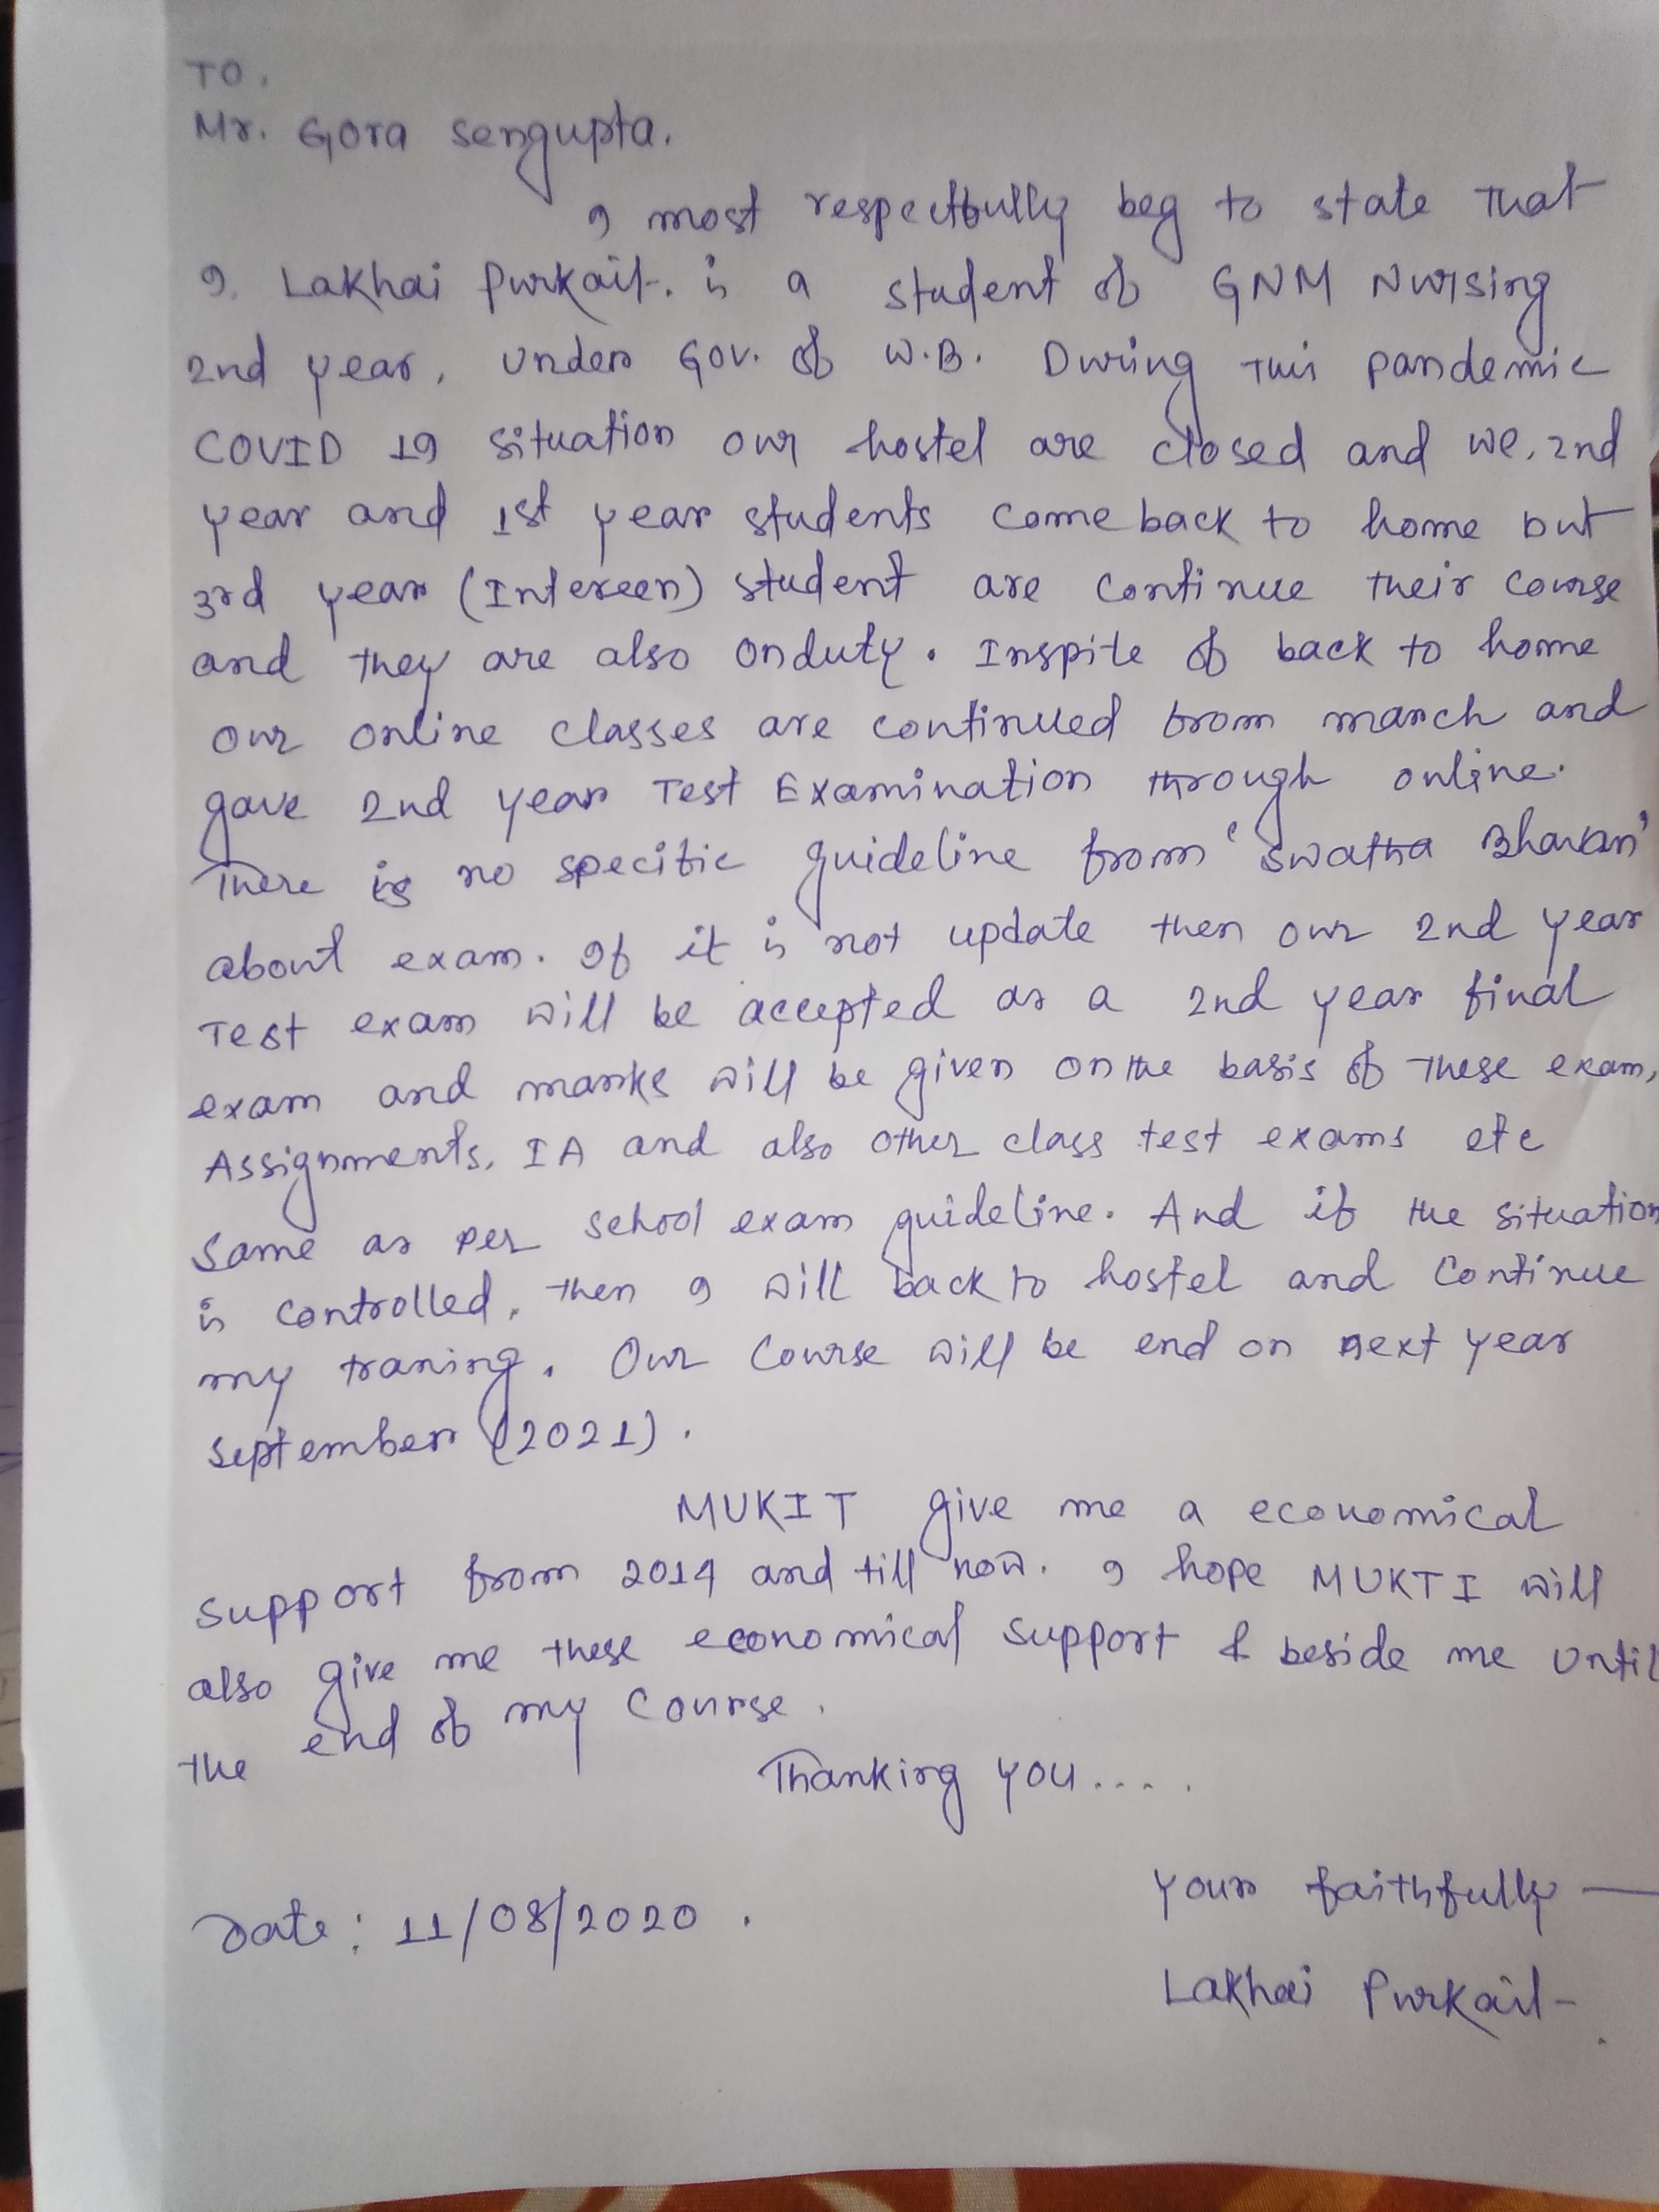 TO,
Mr. Gora Sengupta.
I most respectfully beg to state that
I. Lakhai Purkait. is a student of GNM Nursing
2nd year, under Gov. of W.B. During this pandemic
COVID 19 situation our hostel are closed and we, 2nd
year and 1st year students come back to home but
3rd year (Intereen) student are continue their course
and they are also onduty. Inspite of back to home
our online classes are continued from march and
gave 2nd year Test Examination through online.
There is no specific guideline from 'Swatha Bhavan'
about exam. If it is not update then our 2nd year
Test exam will be accepted as a 2nd year final
exam and marks will be given on the basis of these exam,
Assignments, IA and also other class test exams etc
same as per school exam guideline. And if the situation
is controlled, then I will back to hostel and continue
my traning. Our Course will be end on next year
September (2021).
MUKIT give me a economical
support from 2014 and till now. I hope MUKTI will
also give me these economical support & beside me until
the end of my course.
Thanking you.....
Your faithfully —
Date: 11/08/2020.
Lakhai Purkait